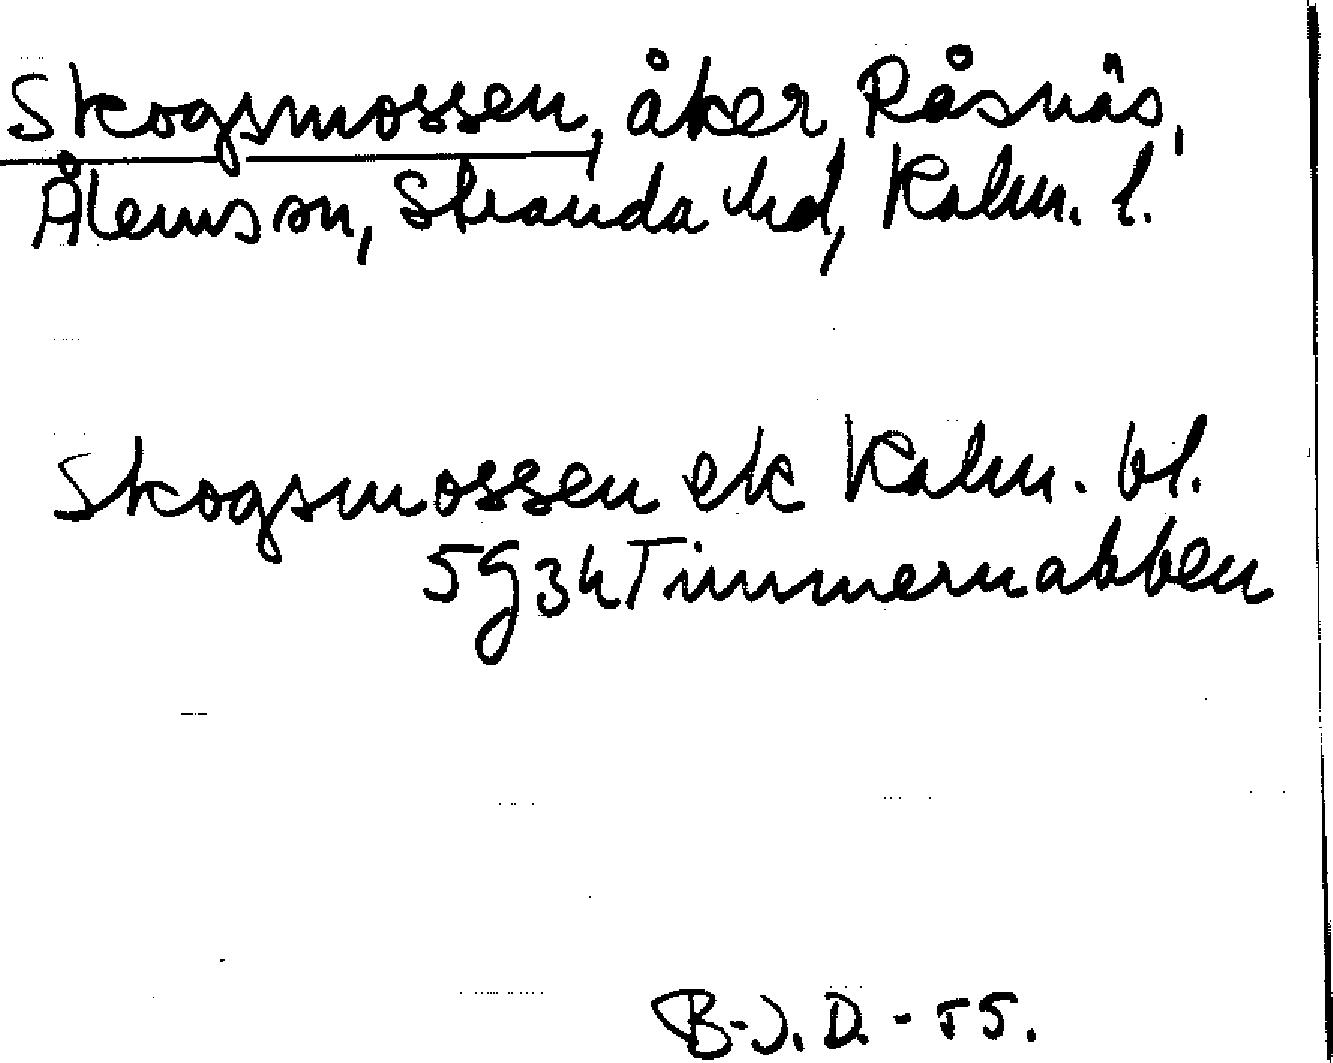 Skogsmossen, åker, Råsnäs,
Ålems sn, Stranda hd, Kalm. l.
Skogsmossen ek Kalm. bl.
5G3h Timmernabben
B-J. D. - 55.